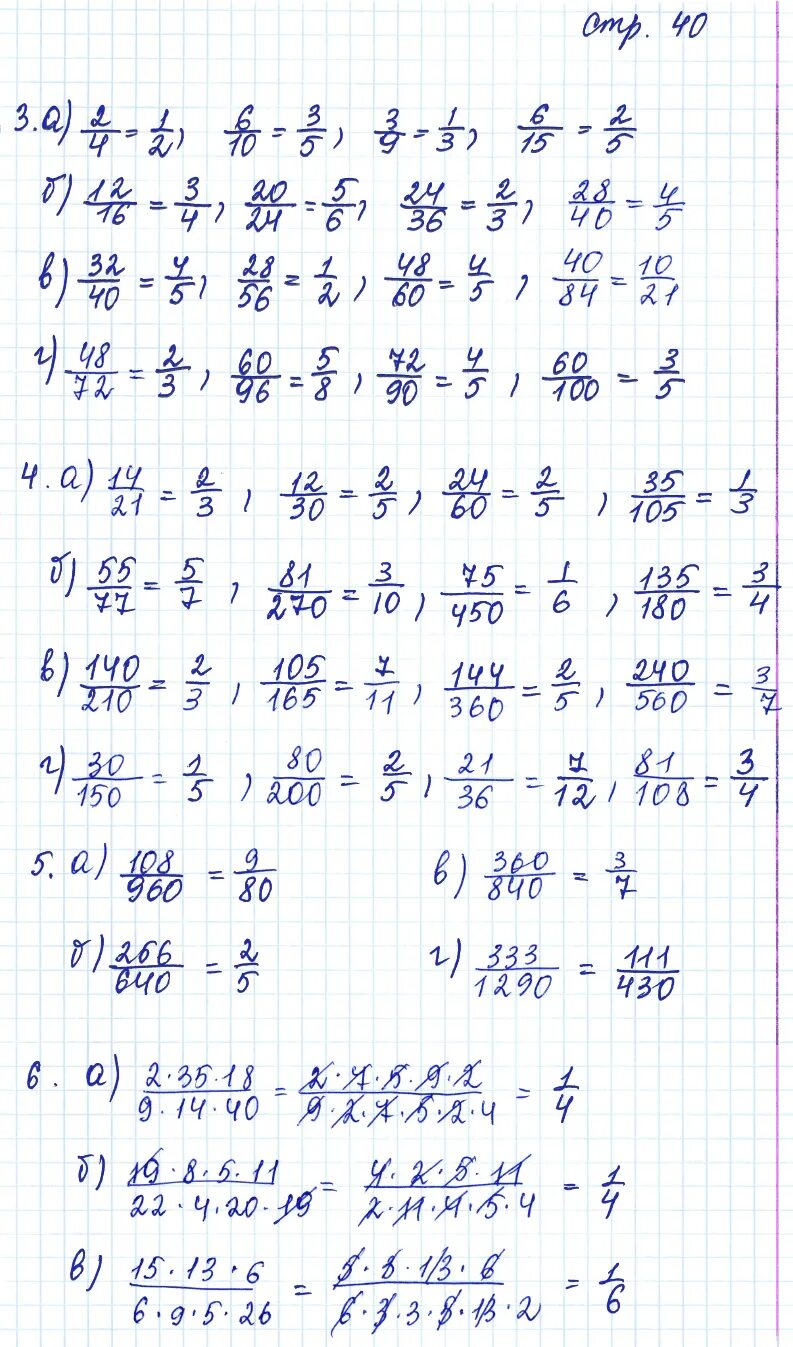 стр. 40
3. а) 2/4 = 1/2, 6/10 = 3/5, 3/9 = 1/3, 6/15 = 2/5
б) 12/16 = 3/4, 20/24 = 5/6, 24/36 = 2/3, 28/40 = 4/5
в) 32/40 = 4/5, 28/56 = 1/2, 48/60 = 4/5, 40/84 = 10/21
г) 48/72 = 2/3, 60/96 = 5/8, 72/90 = 4/5, 60/100 = 3/5
4. а) 14/21 = 2/3, 12/30 = 2/5, 24/60 = 2/5, 35/105 = 1/3
б) 55/77 = 5/7, 81/270 = 3/10, 75/450 = 1/6, 135/180 = 3/4
в) 140/210 = 2/3, 105/165 = 7/11, 144/360 = 2/5, 240/560 = 3/7
г) 30/150 = 1/5, 80/200 = 2/5, 21/36 = 7/12, 81/108 = 3/4
5. а) 108/960 = 9/80 в) 360/840 = 3/7
б) 266/640 = 2/5 г) 333/1290 = 111/430
6. а) 2·35·18/9·14·40 = 2·7·5·9·2/9·2·7·5·2·4 = 1/4
б) 19·8·5·11/22·4·20·19 = 4·2·5·11/2·11·4·5·4 = 1/4
в) 15·13·6/6·9·5·26 =  = 1/6